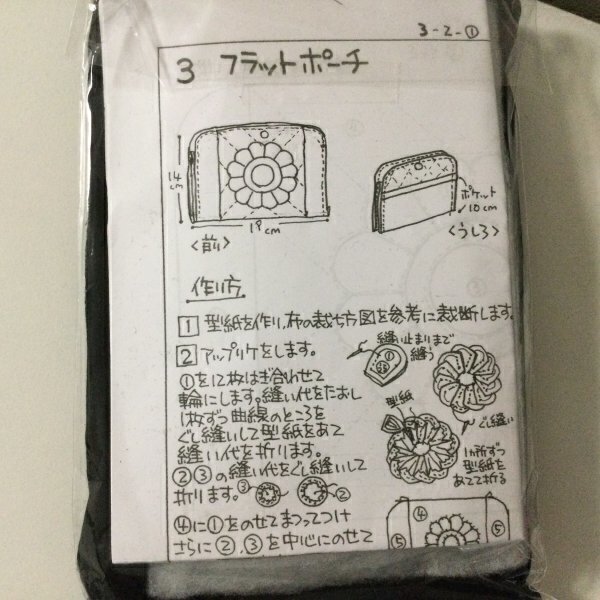 3-2-①
3 フラットポーチ
14cm
19cm
<前>
ポケット
10cm
<うしろ>
作り方
1 型紙を作り、布の裁ち方図を参考に裁断します。
2 アップリケをします。
①を12枚はぎ合わせて
輪にします。縫い代をたおし
1枚ずつ曲線のところを
ぐし縫いして型紙をあて
縫い代を折ります。
②③の縫い代をぐし縫いして
折ります。③ ②
④に①をのせてまつってつけ
さらに②,③を中心にのせて
縫い止まりまで
縫う
型紙
ぐし縫い
1ヵ所ずつ
型紙を
あてて折る
④
⑤ ⑤